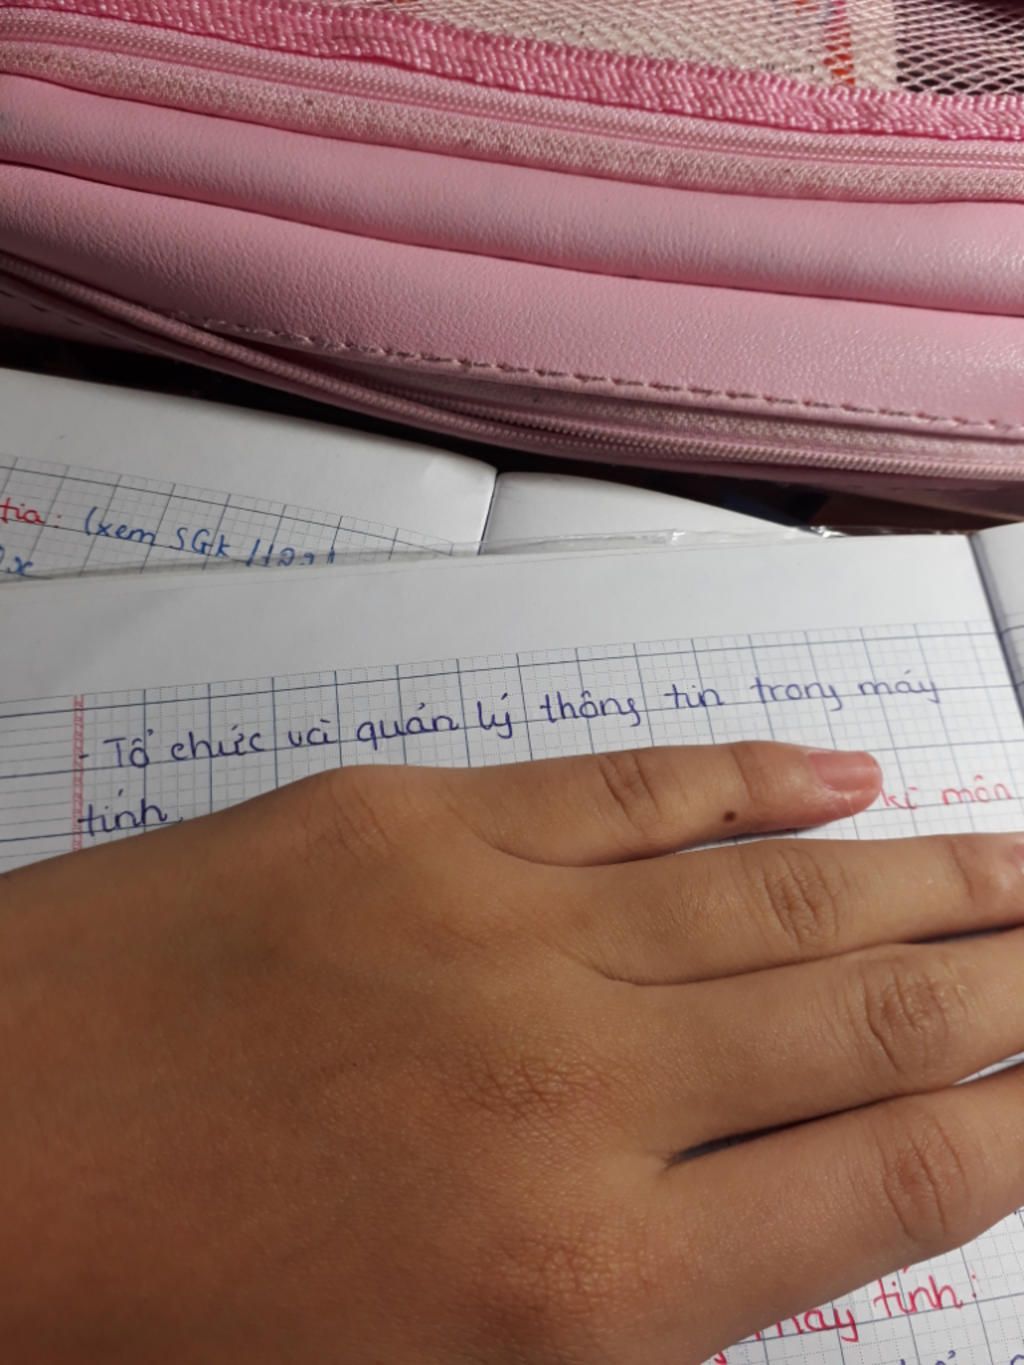 tia: (xem SGK
- Tổ chức và quản lý thông tin trong máy
tính.
kì môn
máy tính: